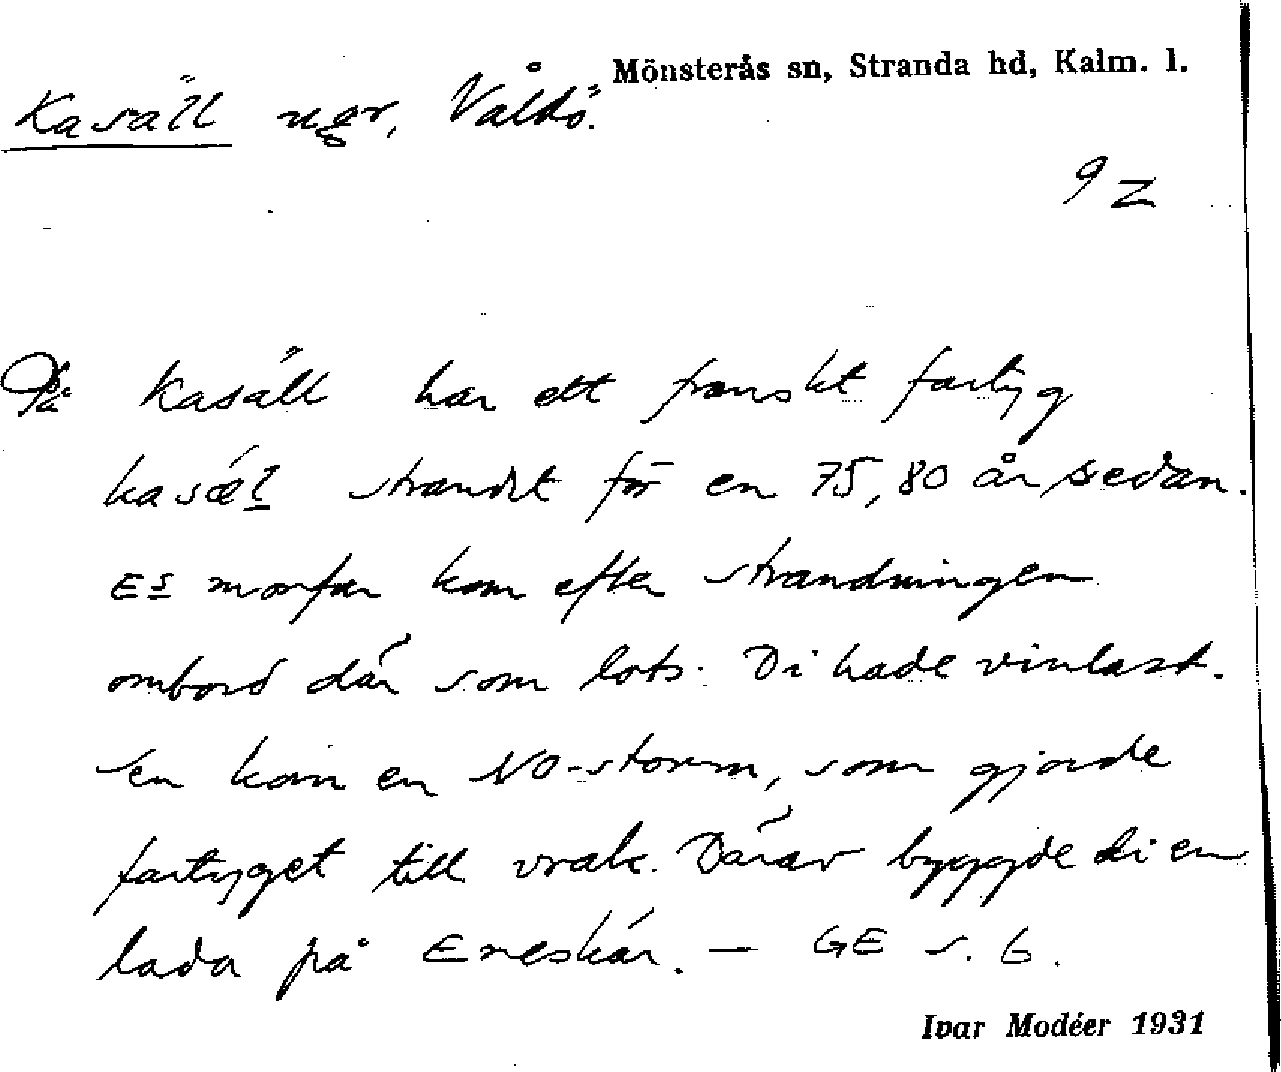 Mönsterås sn, Stranda hd, Kalm. l.
Kasäll ugr, Våldö.
9 Z
På Kasäll har ett franskt fartyg
strandat för en 75, 80 år sedan.
Es morfar kom efter strandningen
ombord där som lots. Di hade vinlast.
Sen kom en NO-storm, som gjorde
fartyget till vrak. Därav byggde di en
lada på Eneskär. — GE s. 6.
Ivar Modéer 1931